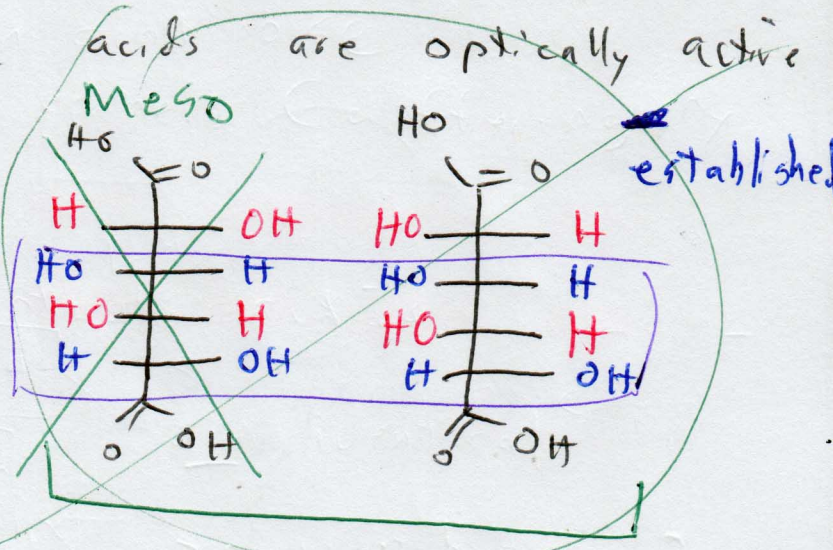 acids are optically active
Meso
HO HO
established
O O
H OH HO H
HO H HO H
HO H HO H
H OH H OH
O OH O OH